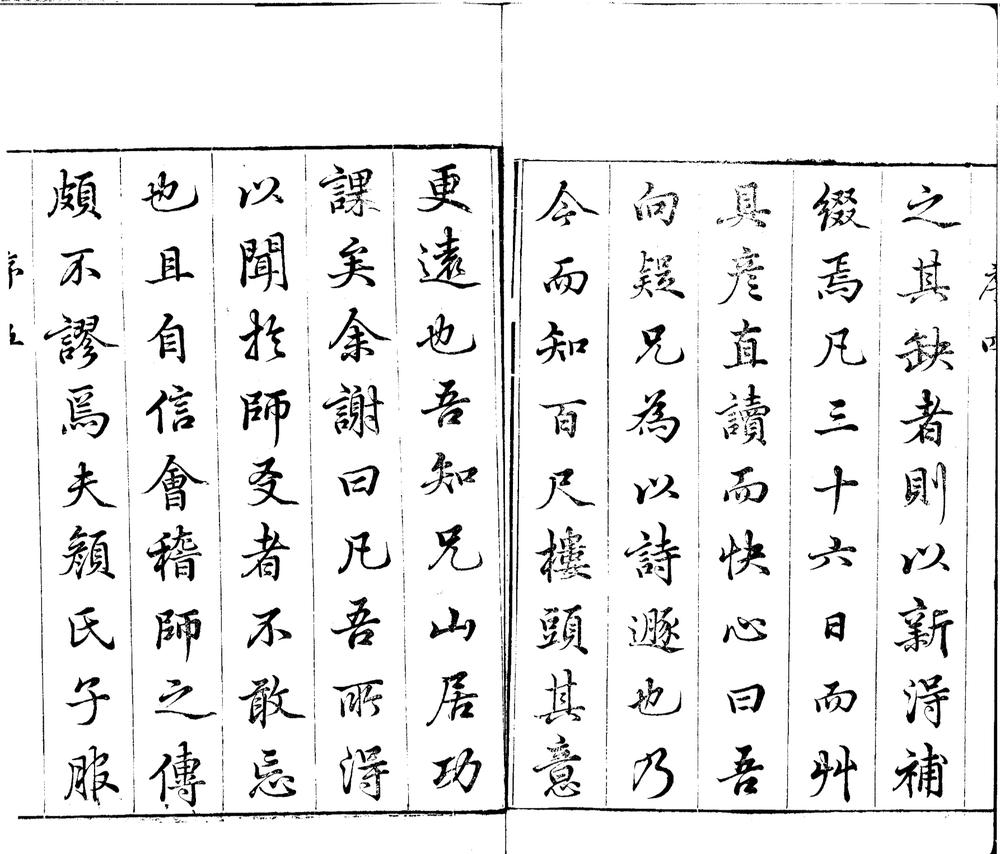 之其缺者則以新淂補
綴焉凡三十六日而艸
具彦直讀而快心曰吾
向疑兄為以詩遯也乃
今而知百尺樓頭其意
更遠也吾知兄山居功
課矣余謝曰凡吾所淂
以聞扵師友者不敢忘
也且自信會稽師之傳
頗不謬焉夫顏氏子服